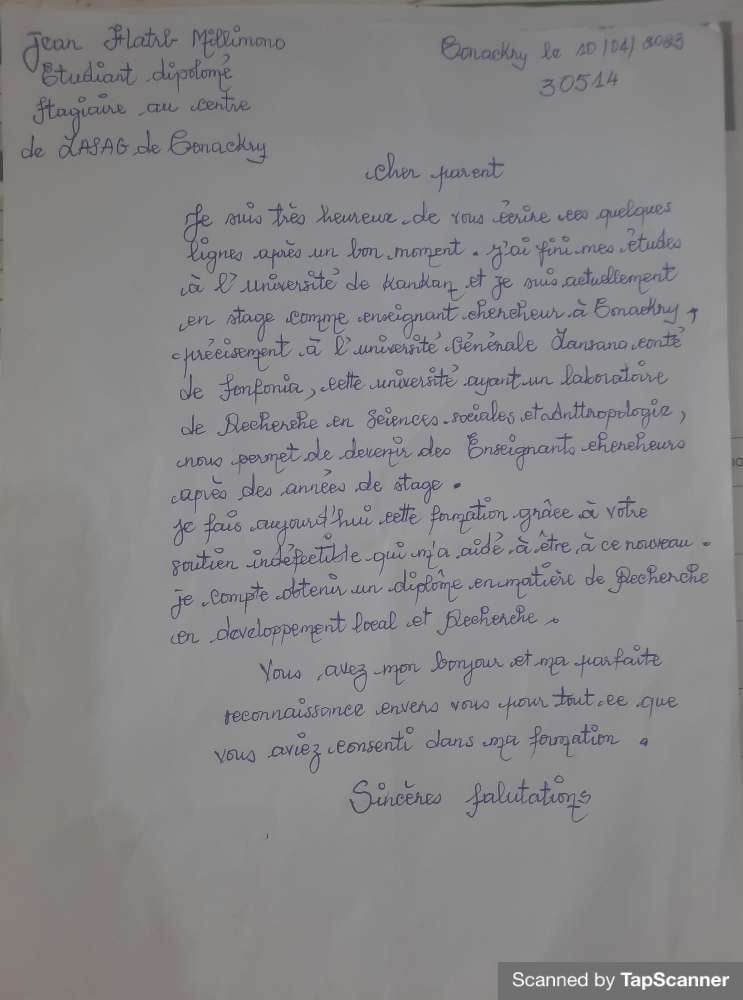 Jean Flatrb Millimono
Etudiant dipolomé
Stagiaire au centre
de LASAG de Conackry
Conackry le 10/04/2023
30514
cher parent
Je suis très heureux de vous écrire ces quelques
lignes après un bon moment. J'ai fini mes études
à l'université de Kankan et je suis actuellement
en stage comme enseignant chercheur à Conackry,
précisement à l'université Générale Lansana conté
de Sonfonia, cette université ayant un laboratoire
de Recherche en Sciences sociales et Antthropologie,
nous permet de devenir des Enseignants chercheurs
après des années de stage.
Je fais aujourd'hui cette formation grâce à votre
soutien indéfectible qui m'a aidé à être à ce nouveau.
je compte obtenir un diplôme en matière de Recherche
en developpement local et Recherche.
Vous avez mon bonjour et ma parfaite
reconnaissance envers vous pour tout ce que
vous aviez consenti dans ma formation.
Sincères salutations
Scanned by TapScanner